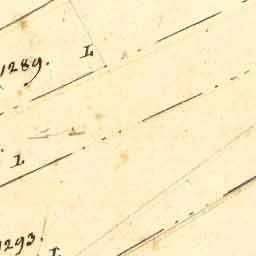 L
1289.
L
1293.
L